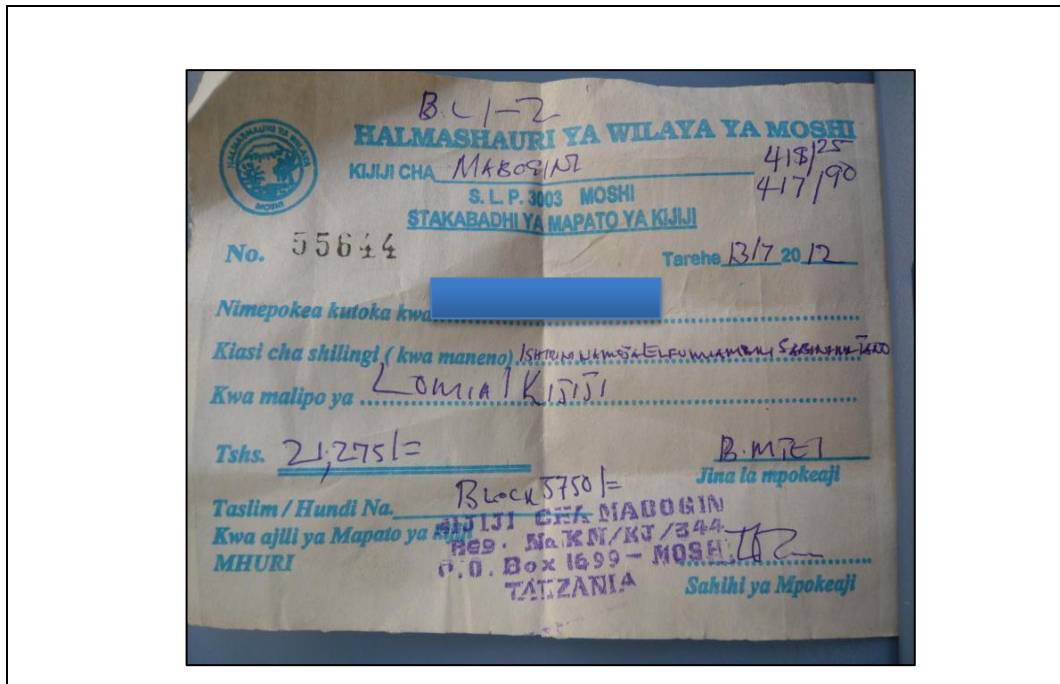 B.L 1-2
HALMASHAURI YA WILAYA YA MOSHI
HALMASHAURI YA WILAYA
MOSHI
KIJIJI CHA MABOGINI
418/25
417/90
S. L. P. 3003 MOSHI
STAKABADHI YA MAPATO YA KIJIJI
No. 55644
Tarehe 13/7 20 12
Nimepokea kutoka kwa
Kiasi cha shilingi ( kwa maneno)
Kwa malipo ya Kijiji
Tshs. 21,275/=
B. MTEI
Jina la mpokeaji
Taslim / Hundi Na. Block 5750/=
Kwa ajili ya Mapato ya
MHURI
KIJIJI CHA MABOGIN
Reg. No KM/KJ/344
P.O. Box 1699 - MOSHI
TANZANIA
Sahihi ya Mpokeaji